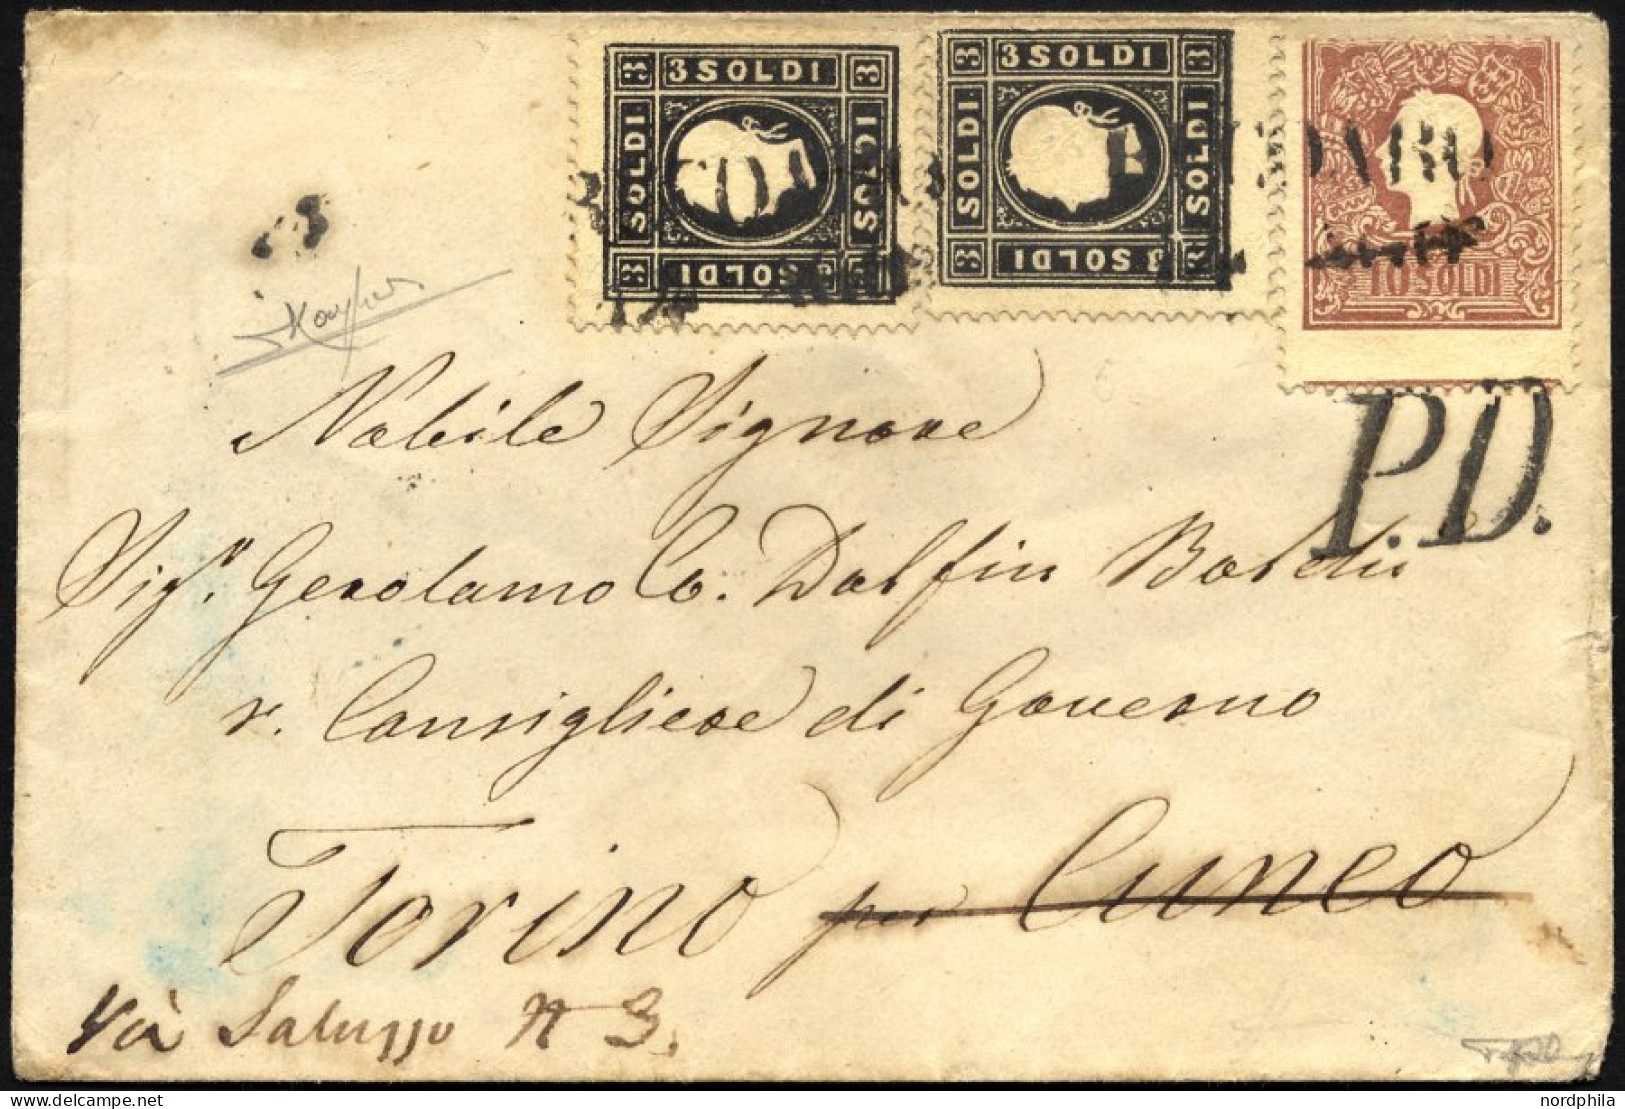 3 SOLDI 3 SOLDI
3 3 SOLDI 3
SOLDI SOLDI
3 SOLDI 3
3 3 SOLDI 3
SOLDI SOLDI
3 3 SOLDI 3
10 SOLDI
P.D.
Nobile Signore
Sigr. Gerolamo Co. Dolfin Boldù
r. Consigliere di Governo
Torino per Cuneo
Via Saluzzo N 3.
nordphila